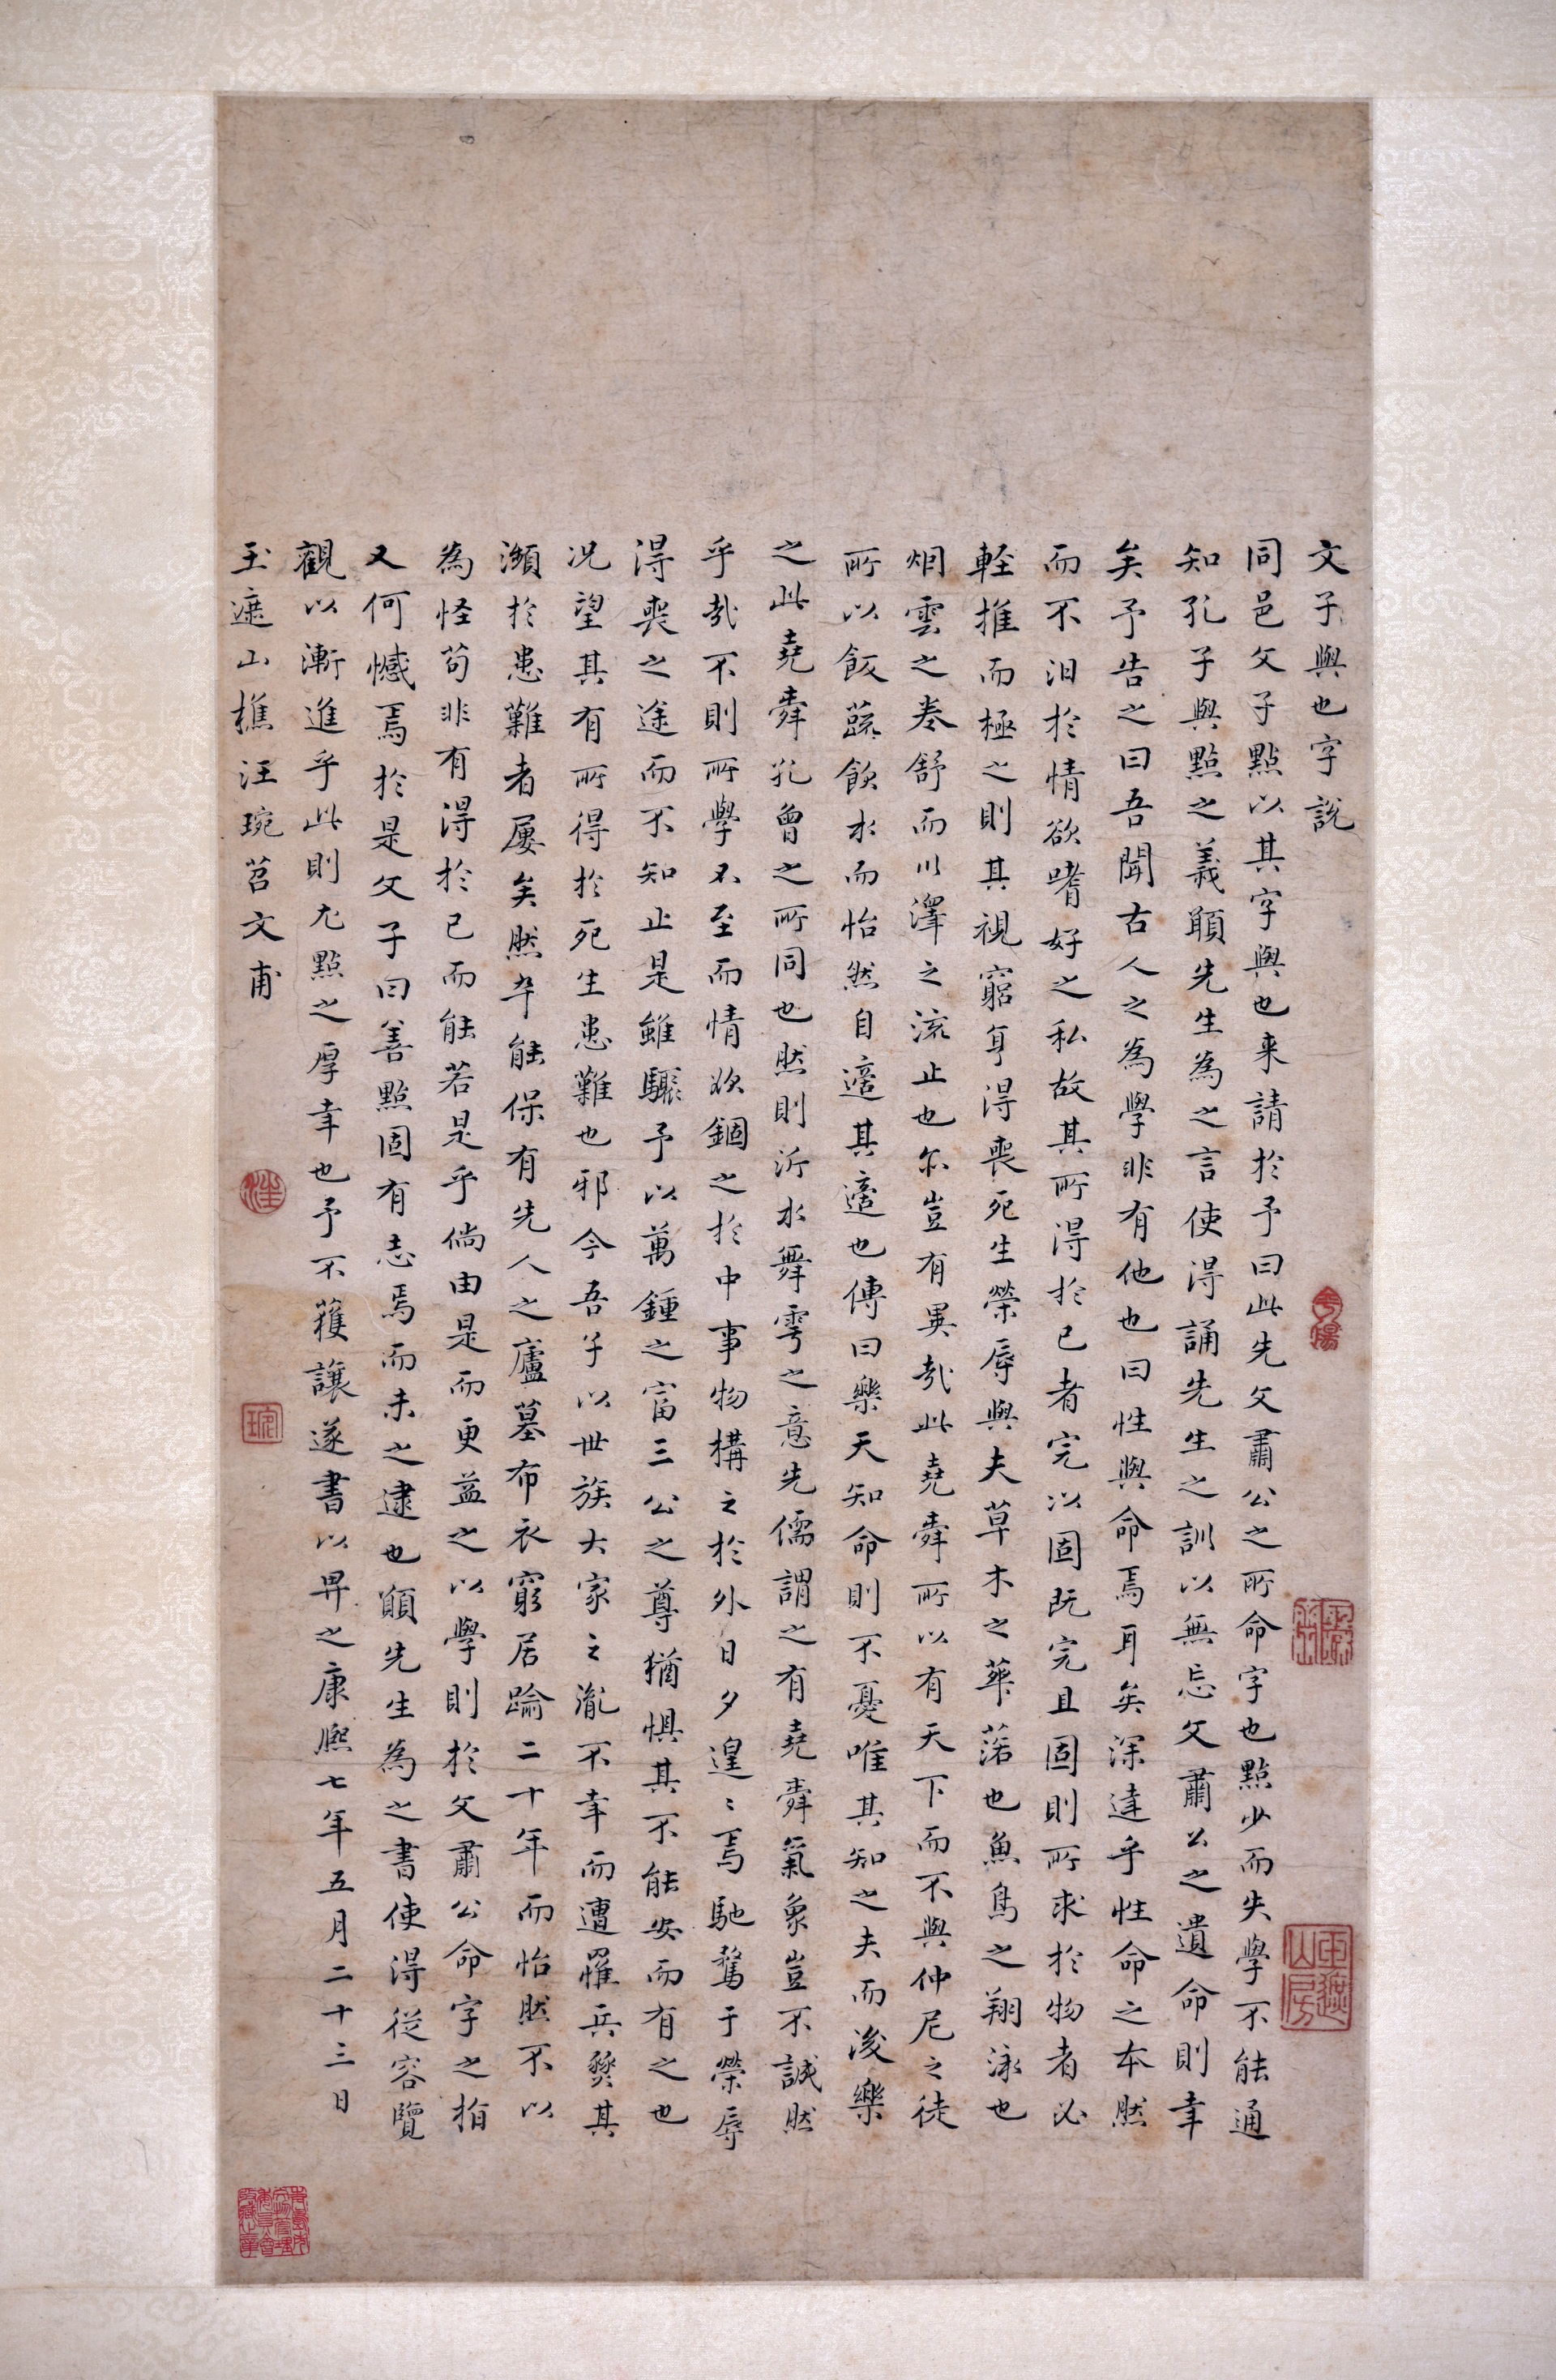 文子與也字說
同邑文子點以其字與也來請於予曰此先文肅公之所命字也點少而失學不能通
知孔子與點之義願先生為之言使得誦先生之訓以無忘文肅公之遺命則幸
矣予告之曰吾聞古人之為學非有他也曰性與命焉耳矣深達乎性命之本然
而不汨於情欲嗜好之私故其所得於己者完以固既完且固則所求於物者必
輕推而極之則其視窮亨得喪死生榮辱與夫草木之華落也魚鳥之翔泳也
烟雲之卷舒而川澤之流止也尒豈有異哉此堯舜所以有天下而不與仲尼之徒
所以飯蔬飲水而怡然自適其適也傳曰樂天知命則不憂唯其知之夫而後樂
之此堯舜孔曾之所同也然則沂水舞雩之意先儒謂之有堯舜氣象豈不誠然
乎哉不則所學不至而情欲錮之於中事物構之於外日夕遑〻焉馳騖于榮辱
得喪之途而不知止是雖驟予以萬鍾之富三公之尊猶惧其不能安而有之也
况望其有所得於死生患難也邪今吾子以世族大家之胤不幸而遭罹兵燹其
瀕於患難者屢矣然卒能保有先人之廬墓布衣窮居踰二十年而怡然不以
為怪苟非有得於己而能若是乎倘由是而更益之以學則於文肅公命字之指
又何憾焉於是文子曰善點固有志焉而未之逮也願先生為之書使得從容覽
觀以漸進乎此則尤點之厚幸也予不獲讓遂書以畀之康熙七年五月二十三日
玉遮山樵汪琬苕文甫
汪
琬
玉遮山房